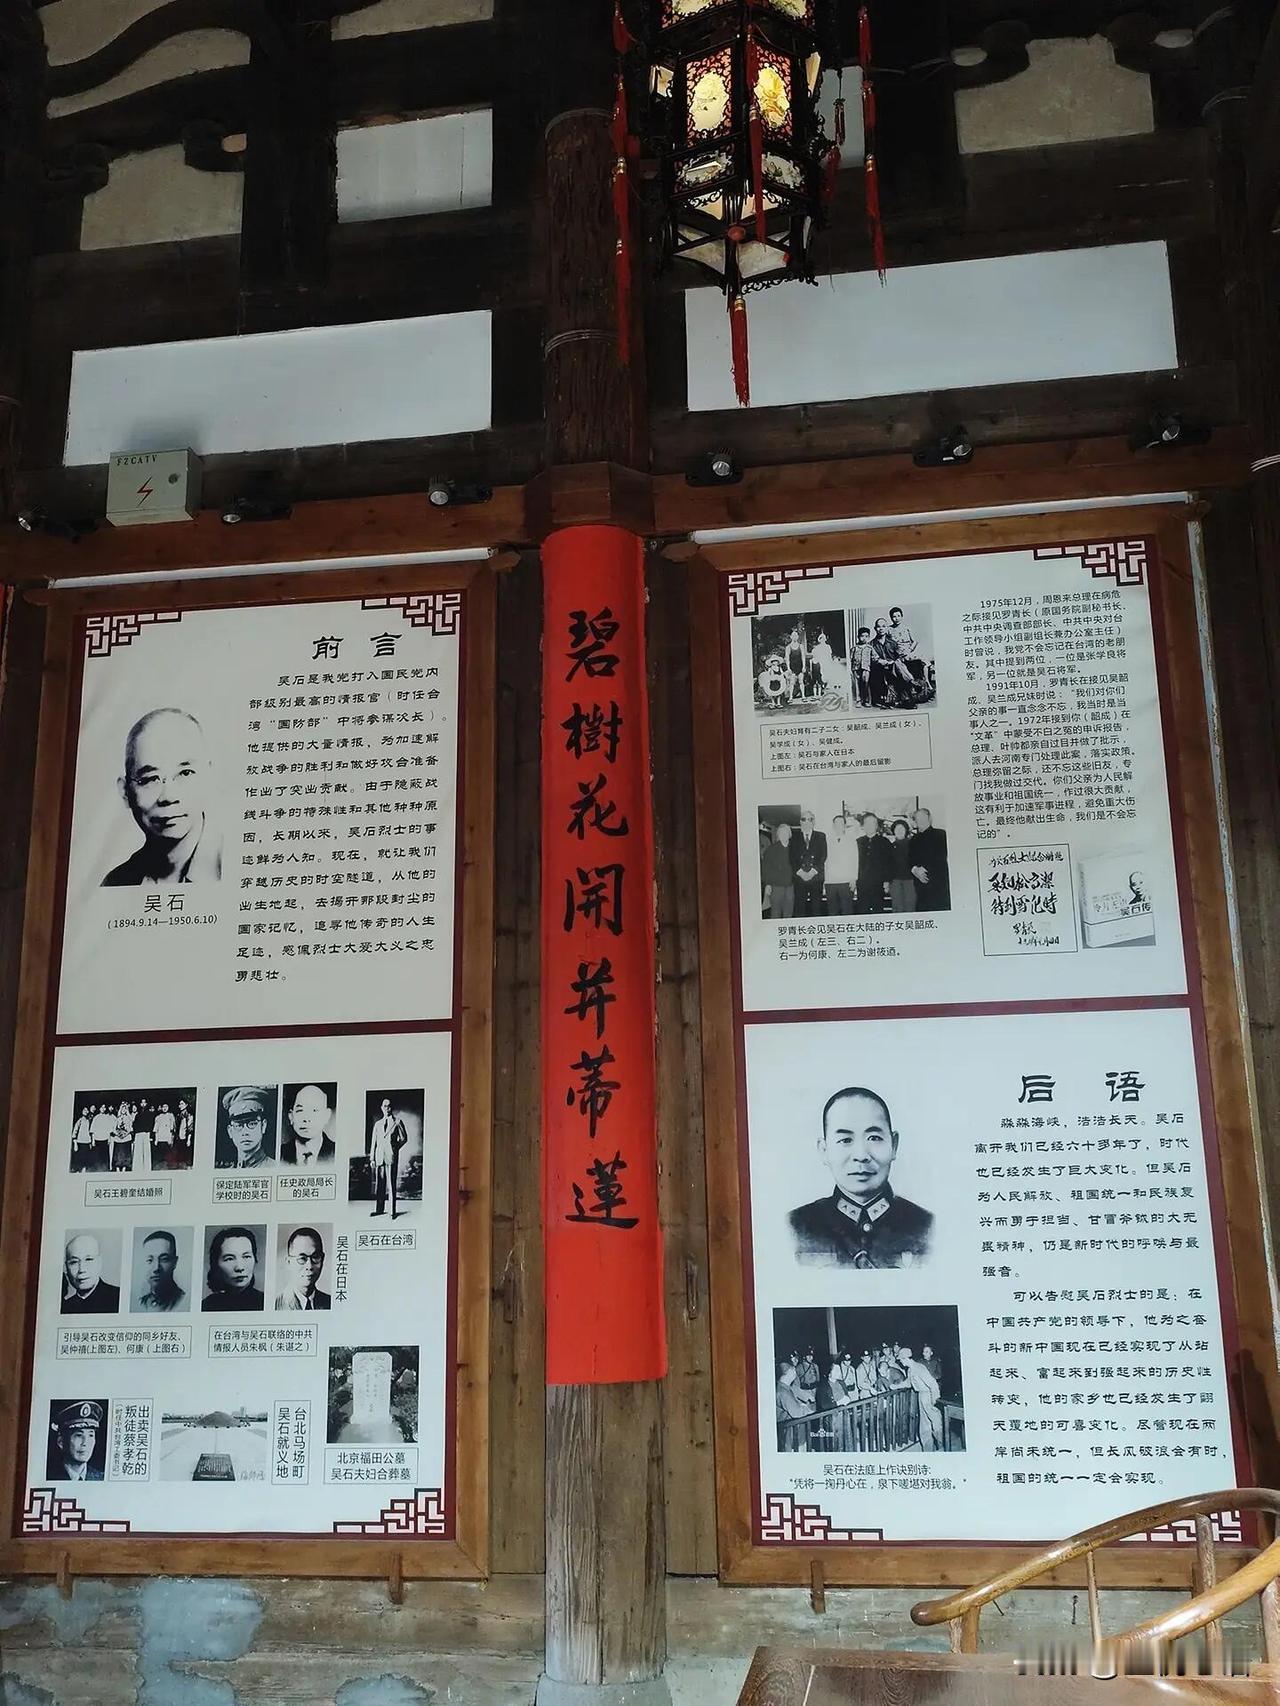 FZCATV
前言
吴石是我党打入国民党内
部级别最高的情报官（时任台
湾“国防部”中将参谋次长）。
他提供的大量情报，为加速解
放战争的胜利和做好攻台准备
作出了突出贡献。由于隐蔽战
线斗争的特殊性和其他种种原
因，长期以来，吴石烈士的事
迹鲜为人知。现在，就让我们
穿越历史的时空隧道，从他的
出生地起，去揭开那段封尘的
国家记忆，追寻他传奇的人生
足迹，感佩烈士大爱大义之忠
勇悲壮。
吴石
（1894.9.14—1950.6.10）
吴石王碧奎结婚照
保定陆军军官
学校时的吴石
任史政局局长
的吴石
吴石在台湾
吴石在日本
引导吴石改变信仰的同乡好友、
吴仲禧(上图左)、何康（上图右）
在台湾与吴石联络的中共
情报人员朱枫（朱谌之）
出卖吴石的
叛徒蔡孝乾
（时任中共台湾工委书记）
台北马场町
吴石就义地
北京福田公墓
吴石夫妇合葬墓
碧樹花開并蒂蓮
吴石夫妇育有二子二女：吴韶成、吴兰成（女）、
吴学成（女）、吴健成。
上图左：吴石与家人在日本
上图右：吴石在台湾与家人的最后留影
罗青长会见吴石在大陆的子女吴韶成、
吴兰成（左三、右二）。
右一为何康、左二为谢筱迺。
1975年12月，周恩来总理在病危
之际接见罗青长（原国务院副秘书长、
中共中央调查部部长、中共中央对台
工作领导小组副组长兼办公室主任）
时曾说，我党不会忘记在台湾的老朋
友。其中提到两位，一位是张学良将
军，另一位就是吴石将军。
1991年10月，罗青长在接见吴韶
成、吴兰成兄妹时说：“我们对你们
父亲的事一直念念不忘，我当时是当
事人之一。1972年接到你（韶成）在
“文革”中蒙受不白之冤的申诉报告，
总理、叶帅都亲自过目并做了批示，
派人去河南专门处理此案，落实政策。
总理弥留之际，还不忘这些旧友，专
门找我做过交代。你们父亲为人民解
放事业和祖国统一，作过很大贡献，
这有利于加速军事进程，避免重大伤
亡。最终他献出生命，我们是不会忘
记的”。
待到雪化时
吴石传
后语
淼淼海峡，浩浩长天。吴石
离开我们已经六十多年了，时代
也已经发生了巨大变化。但吴石
为人民解放、祖国统一和民族复
兴而勇于担当、甘冒斧钺的大无
畏精神，仍是新时代的呼唤与最
强音。
可以告慰吴石烈士的是：在
中国共产党的领导下，他为之奋
斗的新中国现在已经实现了从站
起来、富起来到强起来的历史性
转变，他的家乡也已经发生了翻
天覆地的可喜变化。尽管现在两
岸尚未统一，但长风破浪会有时，
祖国的统一一定会实现。
吴石在法庭上作诀别诗：
“凭将一掬丹心在，泉下嗟堪对我翁。”